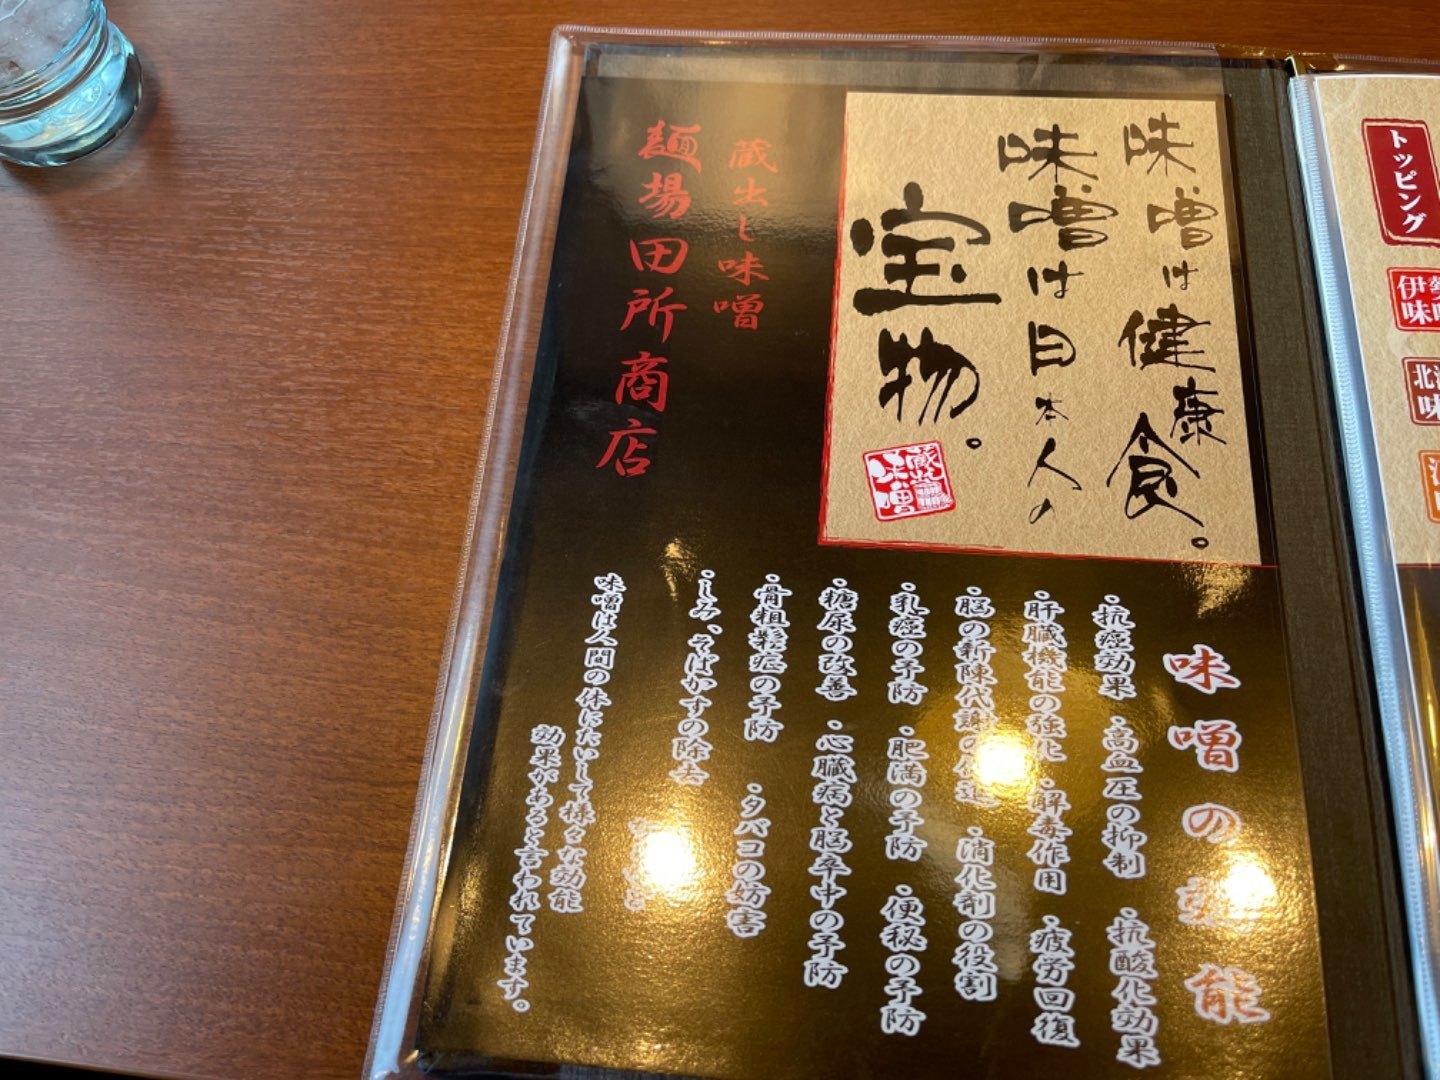 味噌は健康食。
味噌は日本人の
宝物。
蔵出し味噌
蔵出し味噌
麺場田所商店
味噌の効能
・抗癌効果 ・高血圧の抑制 ・抗酸化効果
・肝臓機能の強化 ・解毒作用 ・疲労回復
・脳の新陳代謝の促進 ・消化剤の役割
・乳癌の予防 ・肥満の予防 ・便秘の予防
・糖尿の改善 ・心臓病と脳卒中の予防
・骨粗鬆症の予防 ・タバコの妨害
・しみ、そばかすの除去
味噌は人間の体にたいして様々な効能
効果があると言われています。
トッピング
伊勢
味
北海
味